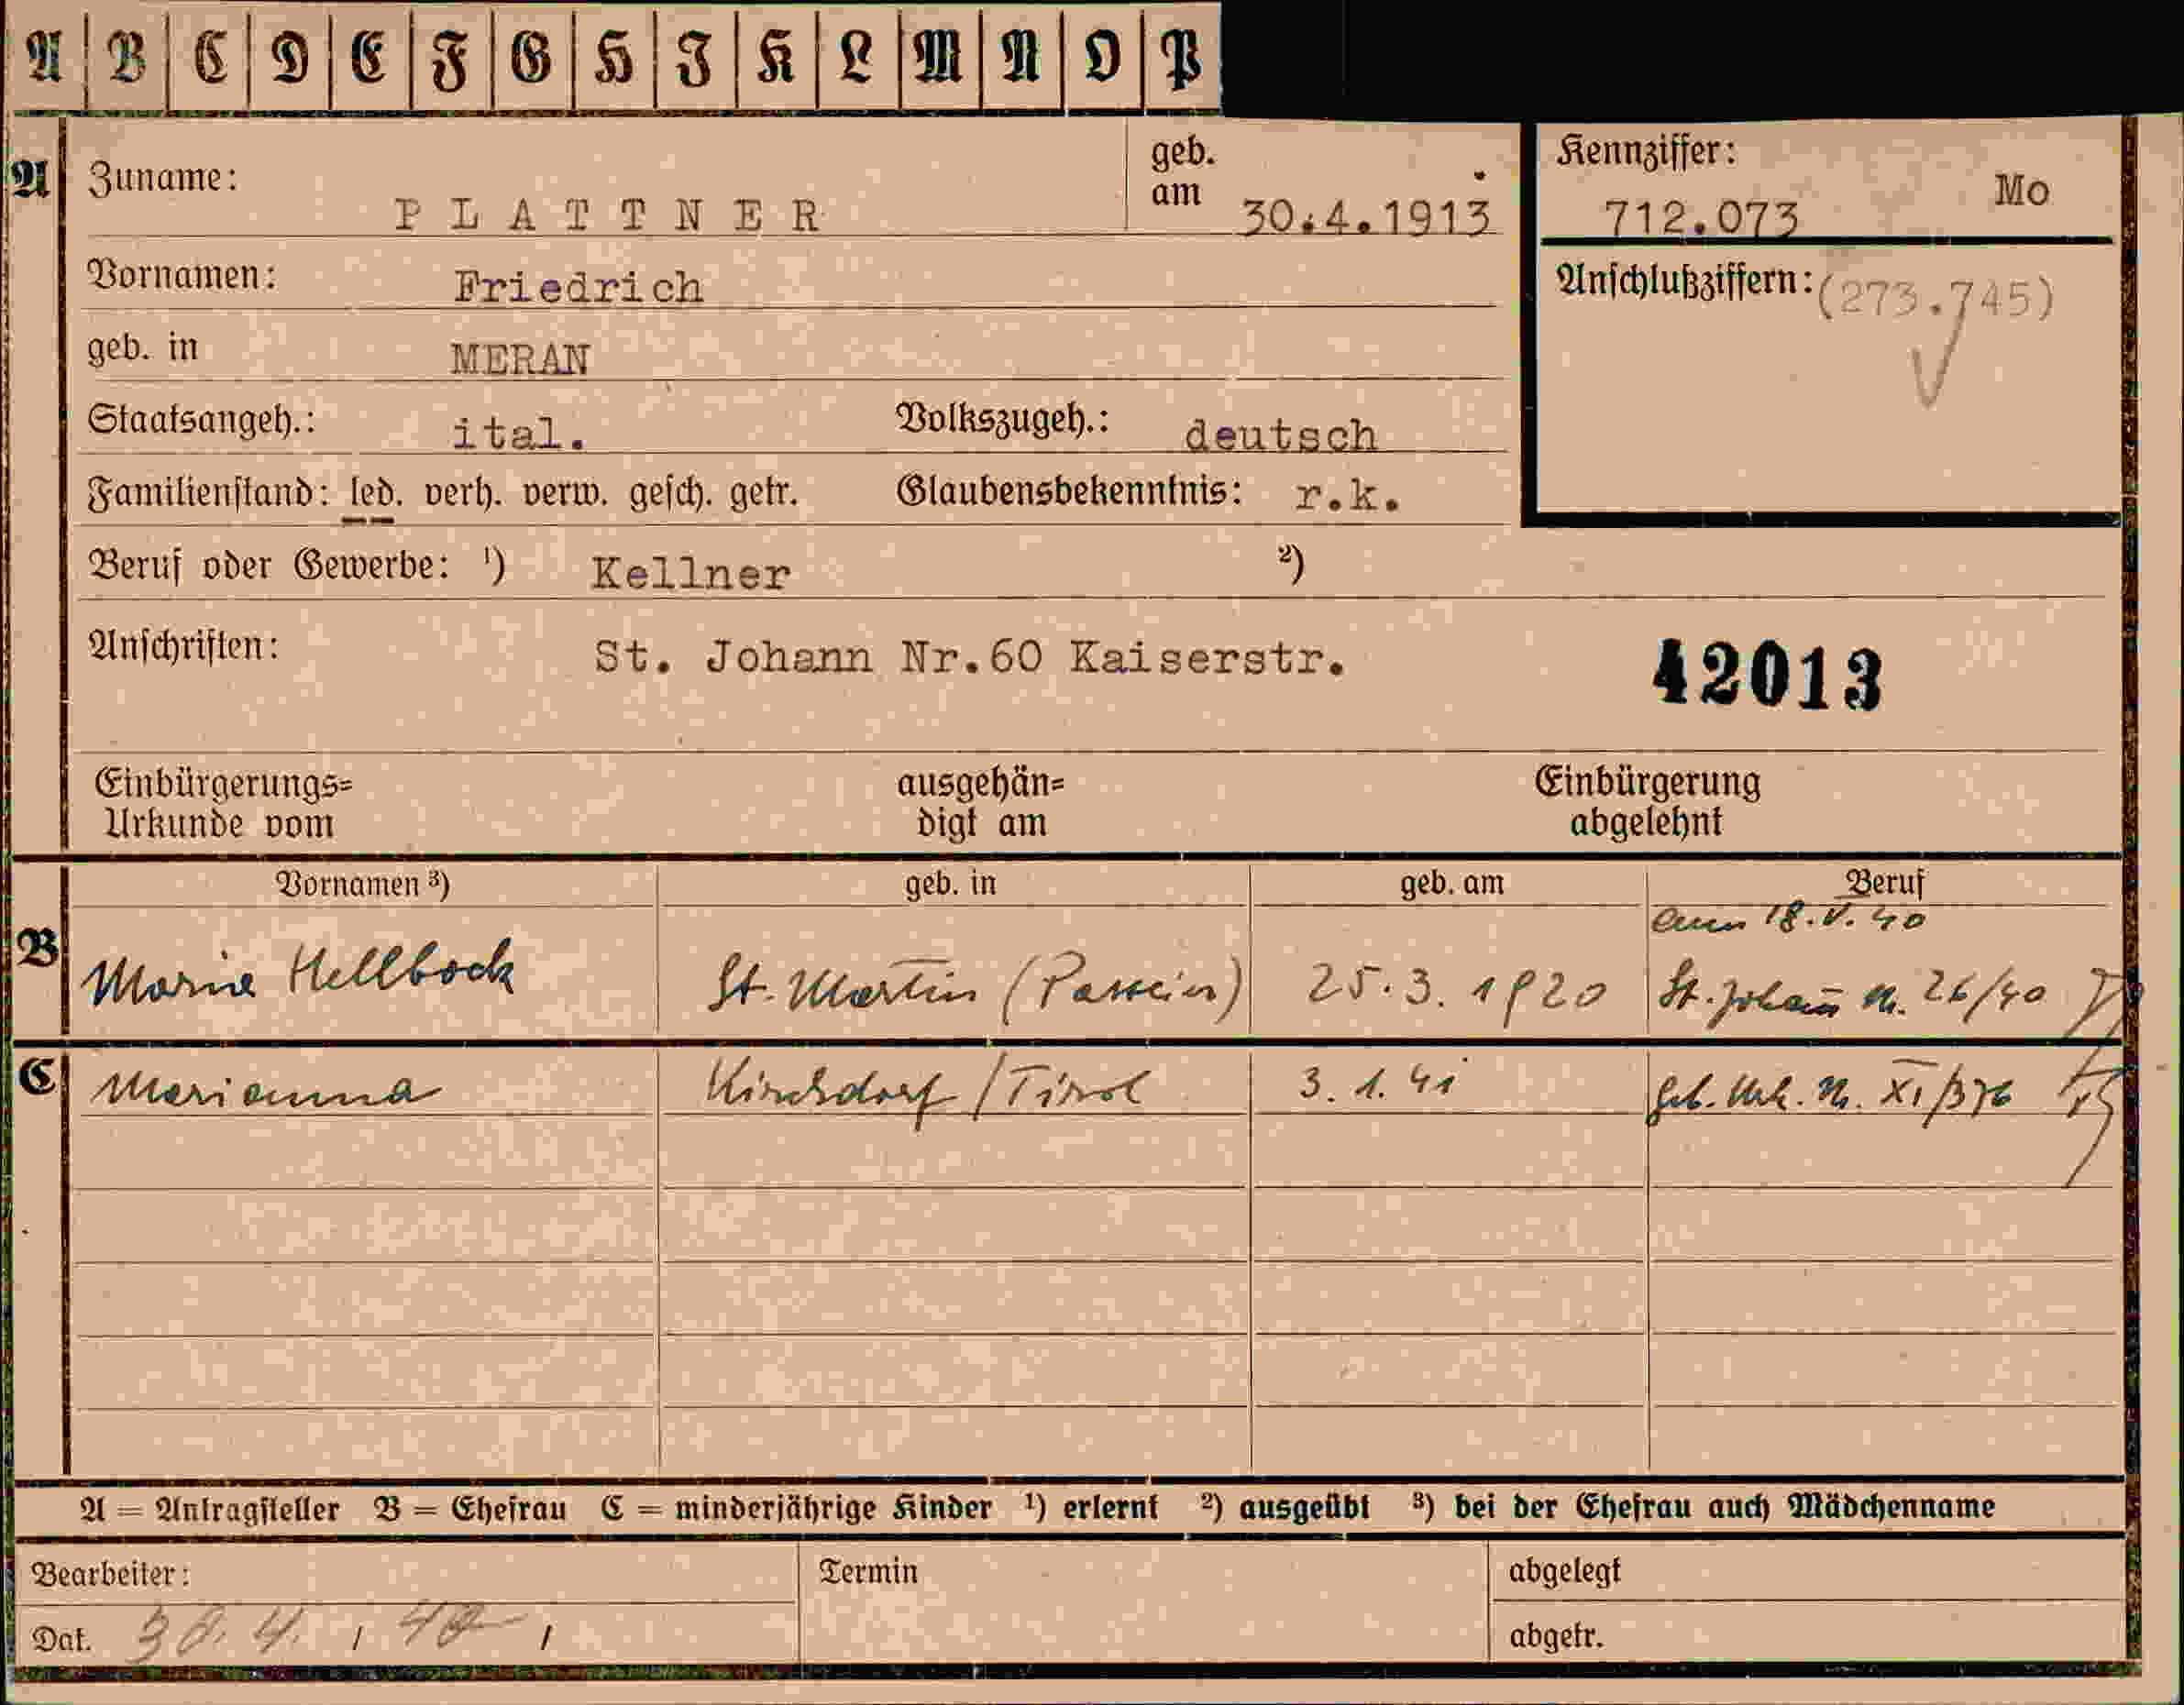 A B C D E F G H I K L M N O P
A Zuname: PLATTNER geb. am 30.4.1913
Kennziffer: 712.073 Mo
Vornamen: Friedrich
Anschlußziffern: (273.745)
geb. in MERAN
Staatsangeh.: ital. Volkszugeh.: deutsch
Familienstand: led. verh. verw. gesch. getr. Glaubensbekenntnis: r.k.
Beruf oder Gewerbe: ¹) Kellner ²)
Anschriften: St. Johann Nr.60 Kaiserstr. 42013
Einbürgerungs= ausgehän= Einbürgerung
Urkunde vom digt am abgelehnt
Vornamen ³) geb. in geb. am Beruf
18.V.40
B Maria Hellbock St. Martin (Passeier) 25.3.1920 St. Johann N. 26/40
C Marianna Kirchdorf / Tirol 3.1.41 Geb. Urk. N. XI/376
A = Antragsteller B = Ehefrau C = minderjährige Kinder ¹) erlernt ²) ausgeübt ³) bei der Ehefrau auch Mädchenname
Bearbeiter: Termin abgelegt
Dat. 30.4. / 40 / abgetr.